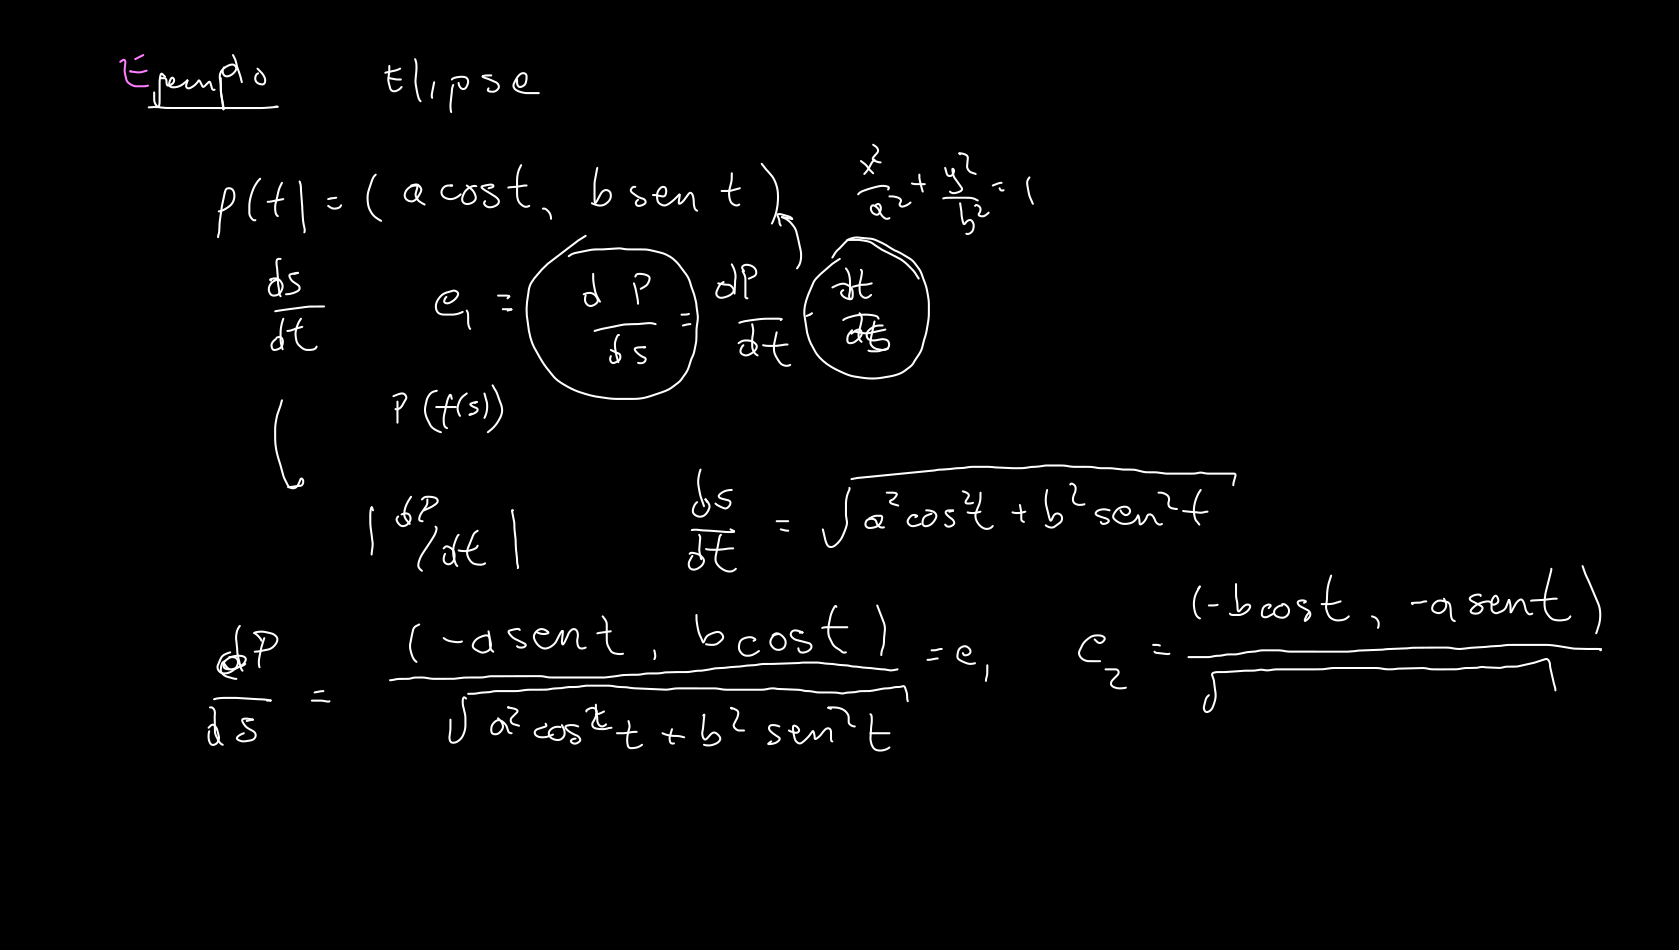 Ejemplo Elipse
p(t) = (a cos t, b sen t) x²/a² + y²/b² = 1
ds/dt e₁ = dP/ds = dP/dt · dt/ds
P(t(s))
|dP/dt| ds/dt = √(a² cos² t + b² sen² t)
dP/ds = (-a sen t, b cos t) / √(a² cos² t + b² sen² t) = e₁ e₂ = (-b cos t, -a sen t) / √